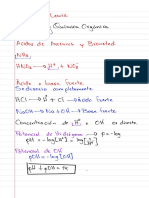 Química Orgánica
Acidos de Arrhenius y Bronsted
HNO₃ → H⁺ + NO₃⁻
Acido o base fuerte
Se disocia completamente
HCl → H⁺ + Cl⁻ Acido fuerte
NaOH → Na⁺ + OH⁻ Base fuerte
Concentración de H⁺
Potencial de Hidrógeno p = -log
pH = -log[H⁺]
Potencial de OH
pOH = -log[OH⁻]
pH + pOH = 14